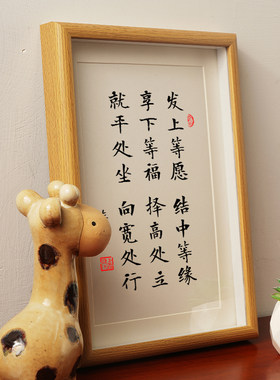 发上等愿 结中等缘
享下等福 择高处立
就平处坐 向宽处行